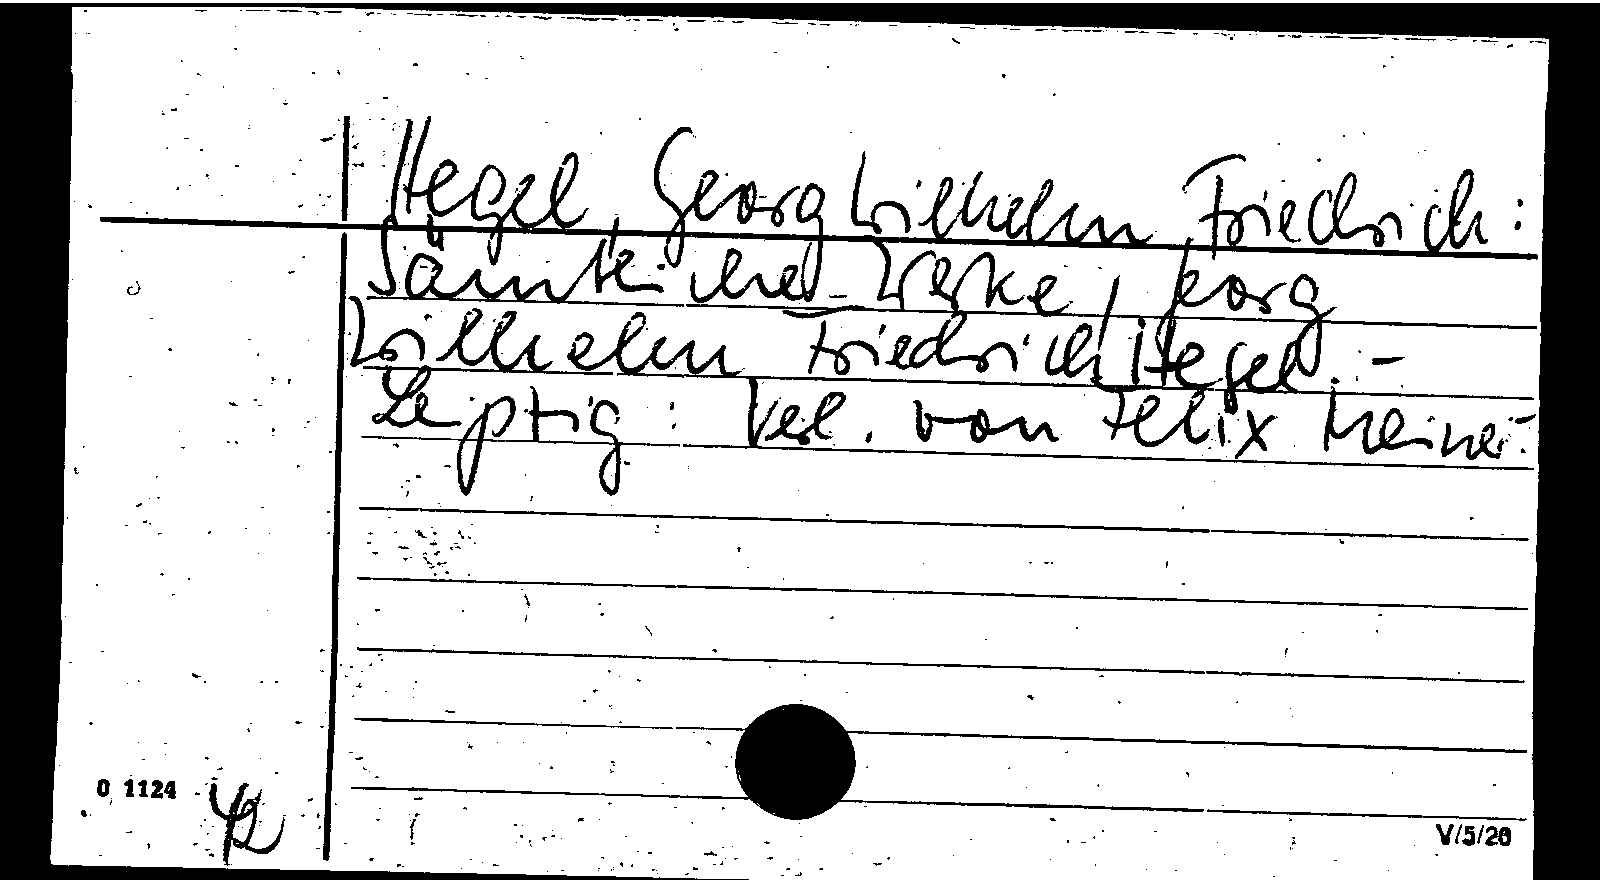 Hegel, Georg Wilhelm Friedrich:
Sämtliche Werke / Georg
Wilhelm Friedrich Hegel. -
Leipzig: Verl. von Felix Meiner.
0 1124
V/5/20